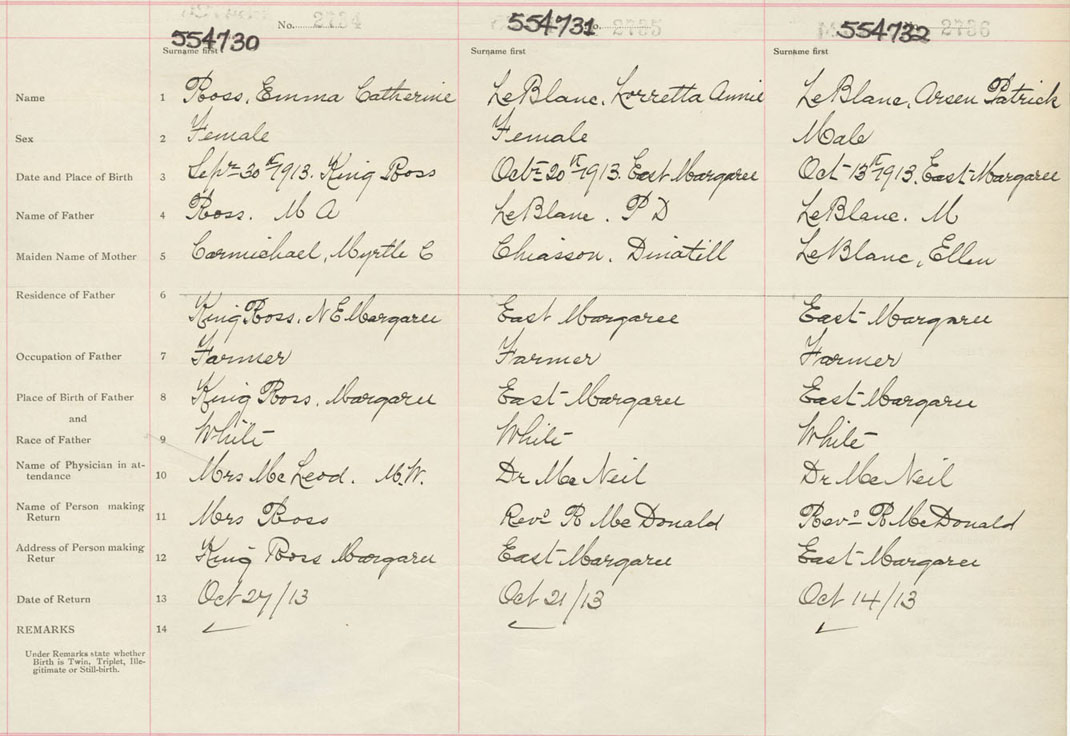 No. 2734 No. 2735 No. 2736
554730 554731 554732
Surname first Surname first Surname first
Name 1 Ross, Emma Catherine LeBlanc, Lorretta Annie LeBlanc, Arsen Patrick
Sex 2 Female Female Male
Date and Place of Birth 3 Sepr 30th 1913. King Ross Octr 20th 1913. East Margaree Oct 13th 1913. East Margaree
Name of Father 4 Ross. M A LeBlanc. P D LeBlanc. M
Maiden Name of Mother 5 Carmichael, Myrtle C Chiasson, Dinatill LeBlanc, Ellen
Residence of Father 6
King Ross, N E Margaree East Margaree East Margaree
Occupation of Father 7 Farmer Farmer Farmer
Place of Birth of Father 8 King Ross, Margaree East Margaree East Margaree
and
Race of Father 9 White White White
Name of Physician in at-
tendance 10 Mrs McLeod. M.W. Dr McNeil Dr McNeil
Name of Person making
Return 11 Mrs Ross Revd R McDonald Revd R McDonald
Address of Person making
Retur 12 King Ross Margaree East Margaree East Margaree
Date of Return 13 Oct 27/13 Oct 21/13 Oct 14/13
REMARKS 14
Under Remarks state whether
Birth is Twin, Triplet, Ille-
gitimate or Still-birth.